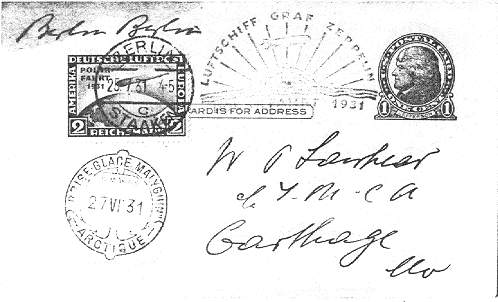 Berlin Berlin
BERLIN
25.7.31. 4-5
C
STAAKEN
DEUTSCHE LUFTPOST
AMERIKA
EUROPA
POLAR
FAHRT
1931
2 REICHSMARK 2
LUFTSCHIFF GRAF ZEPPELIN
1931
ARD IS FOR ADDRESS
1 1
BRISE GLACE MALYGUINE
27 VII 31
ARCTIQUE
W P Lawhear
c/o Y-M-C A
Carthage
Mo